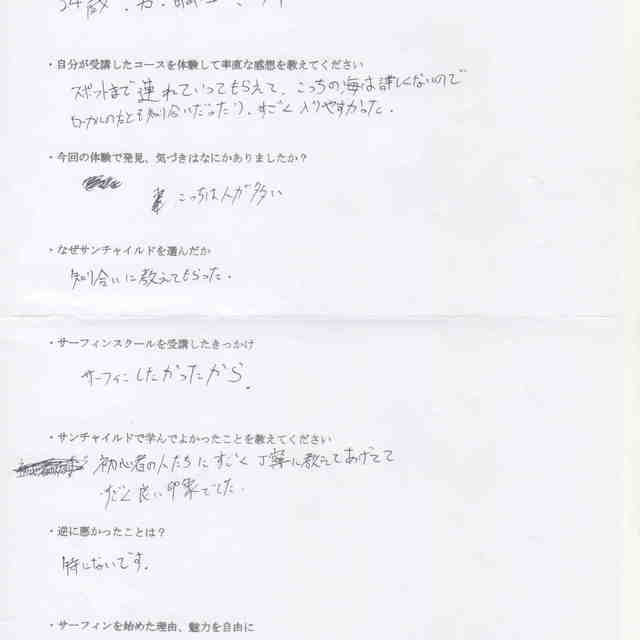 ・自分が受講したコースを体験して率直な感想を教えてください
スポットまで連れていってもらえて、こっちの海は詳しくないので
ローカルの方とも知り合いだったり、すごく入りやすかった.
・今回の体験で発見、気づきはなにかありましたか?
こっちは人が多い
・なぜサンチャイルドを選んだか
知り合いに教えてもらった.
・サーフィンスクールを受講したきっかけ
サーフィンしたかったから.
・サンチャイルドで学んでよかったことを教えてください
初心者の人たちにすごく丁寧に教えてあげてて
すごく良い印象でした.
・逆に悪かったことは?
特にないです.
・サーフィンを始めた理由、魅力を自由に